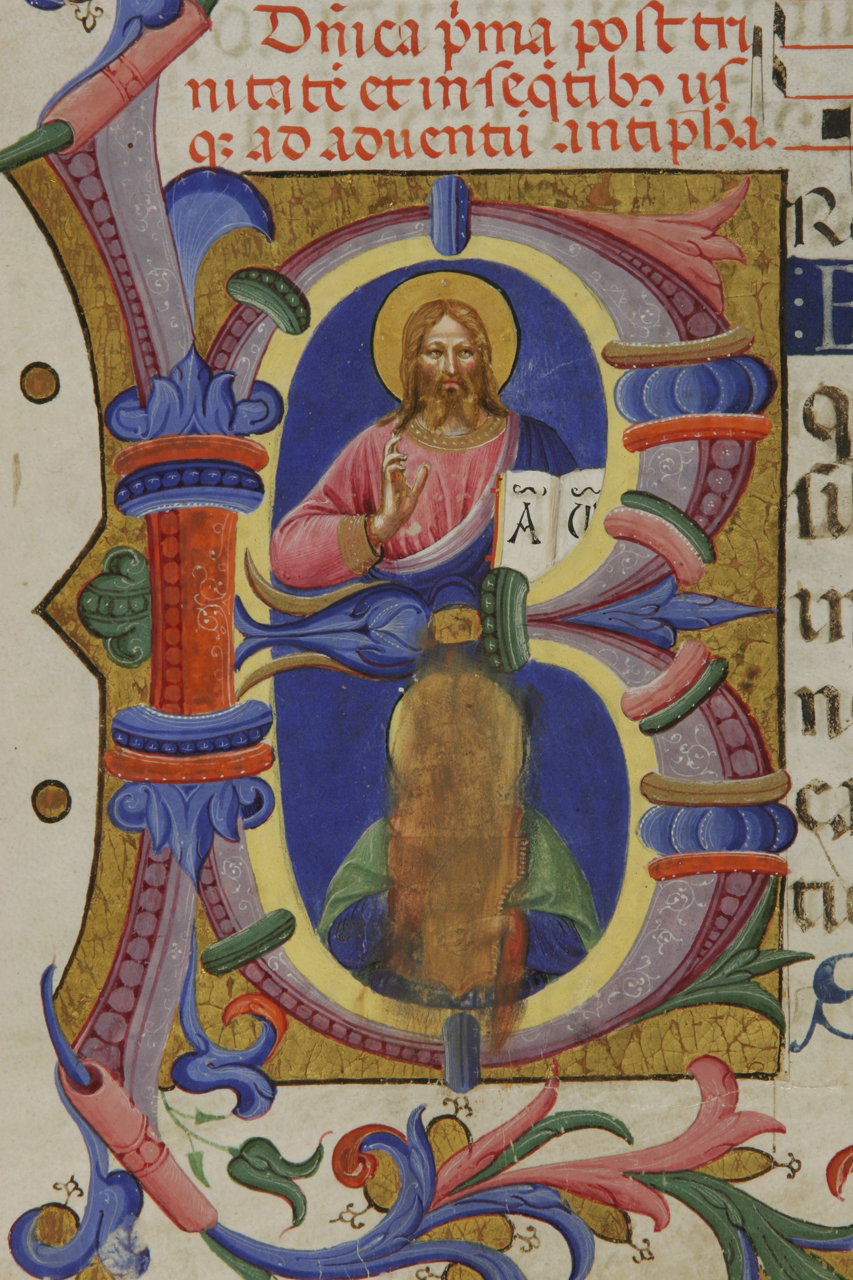 Dñica p̃ma post tri
nitatē et in seq̃tibꝫ us
qꝫ ad aduentū antiph̃a.
B
A ω
R
E
q
sil
in
n
ça
tu